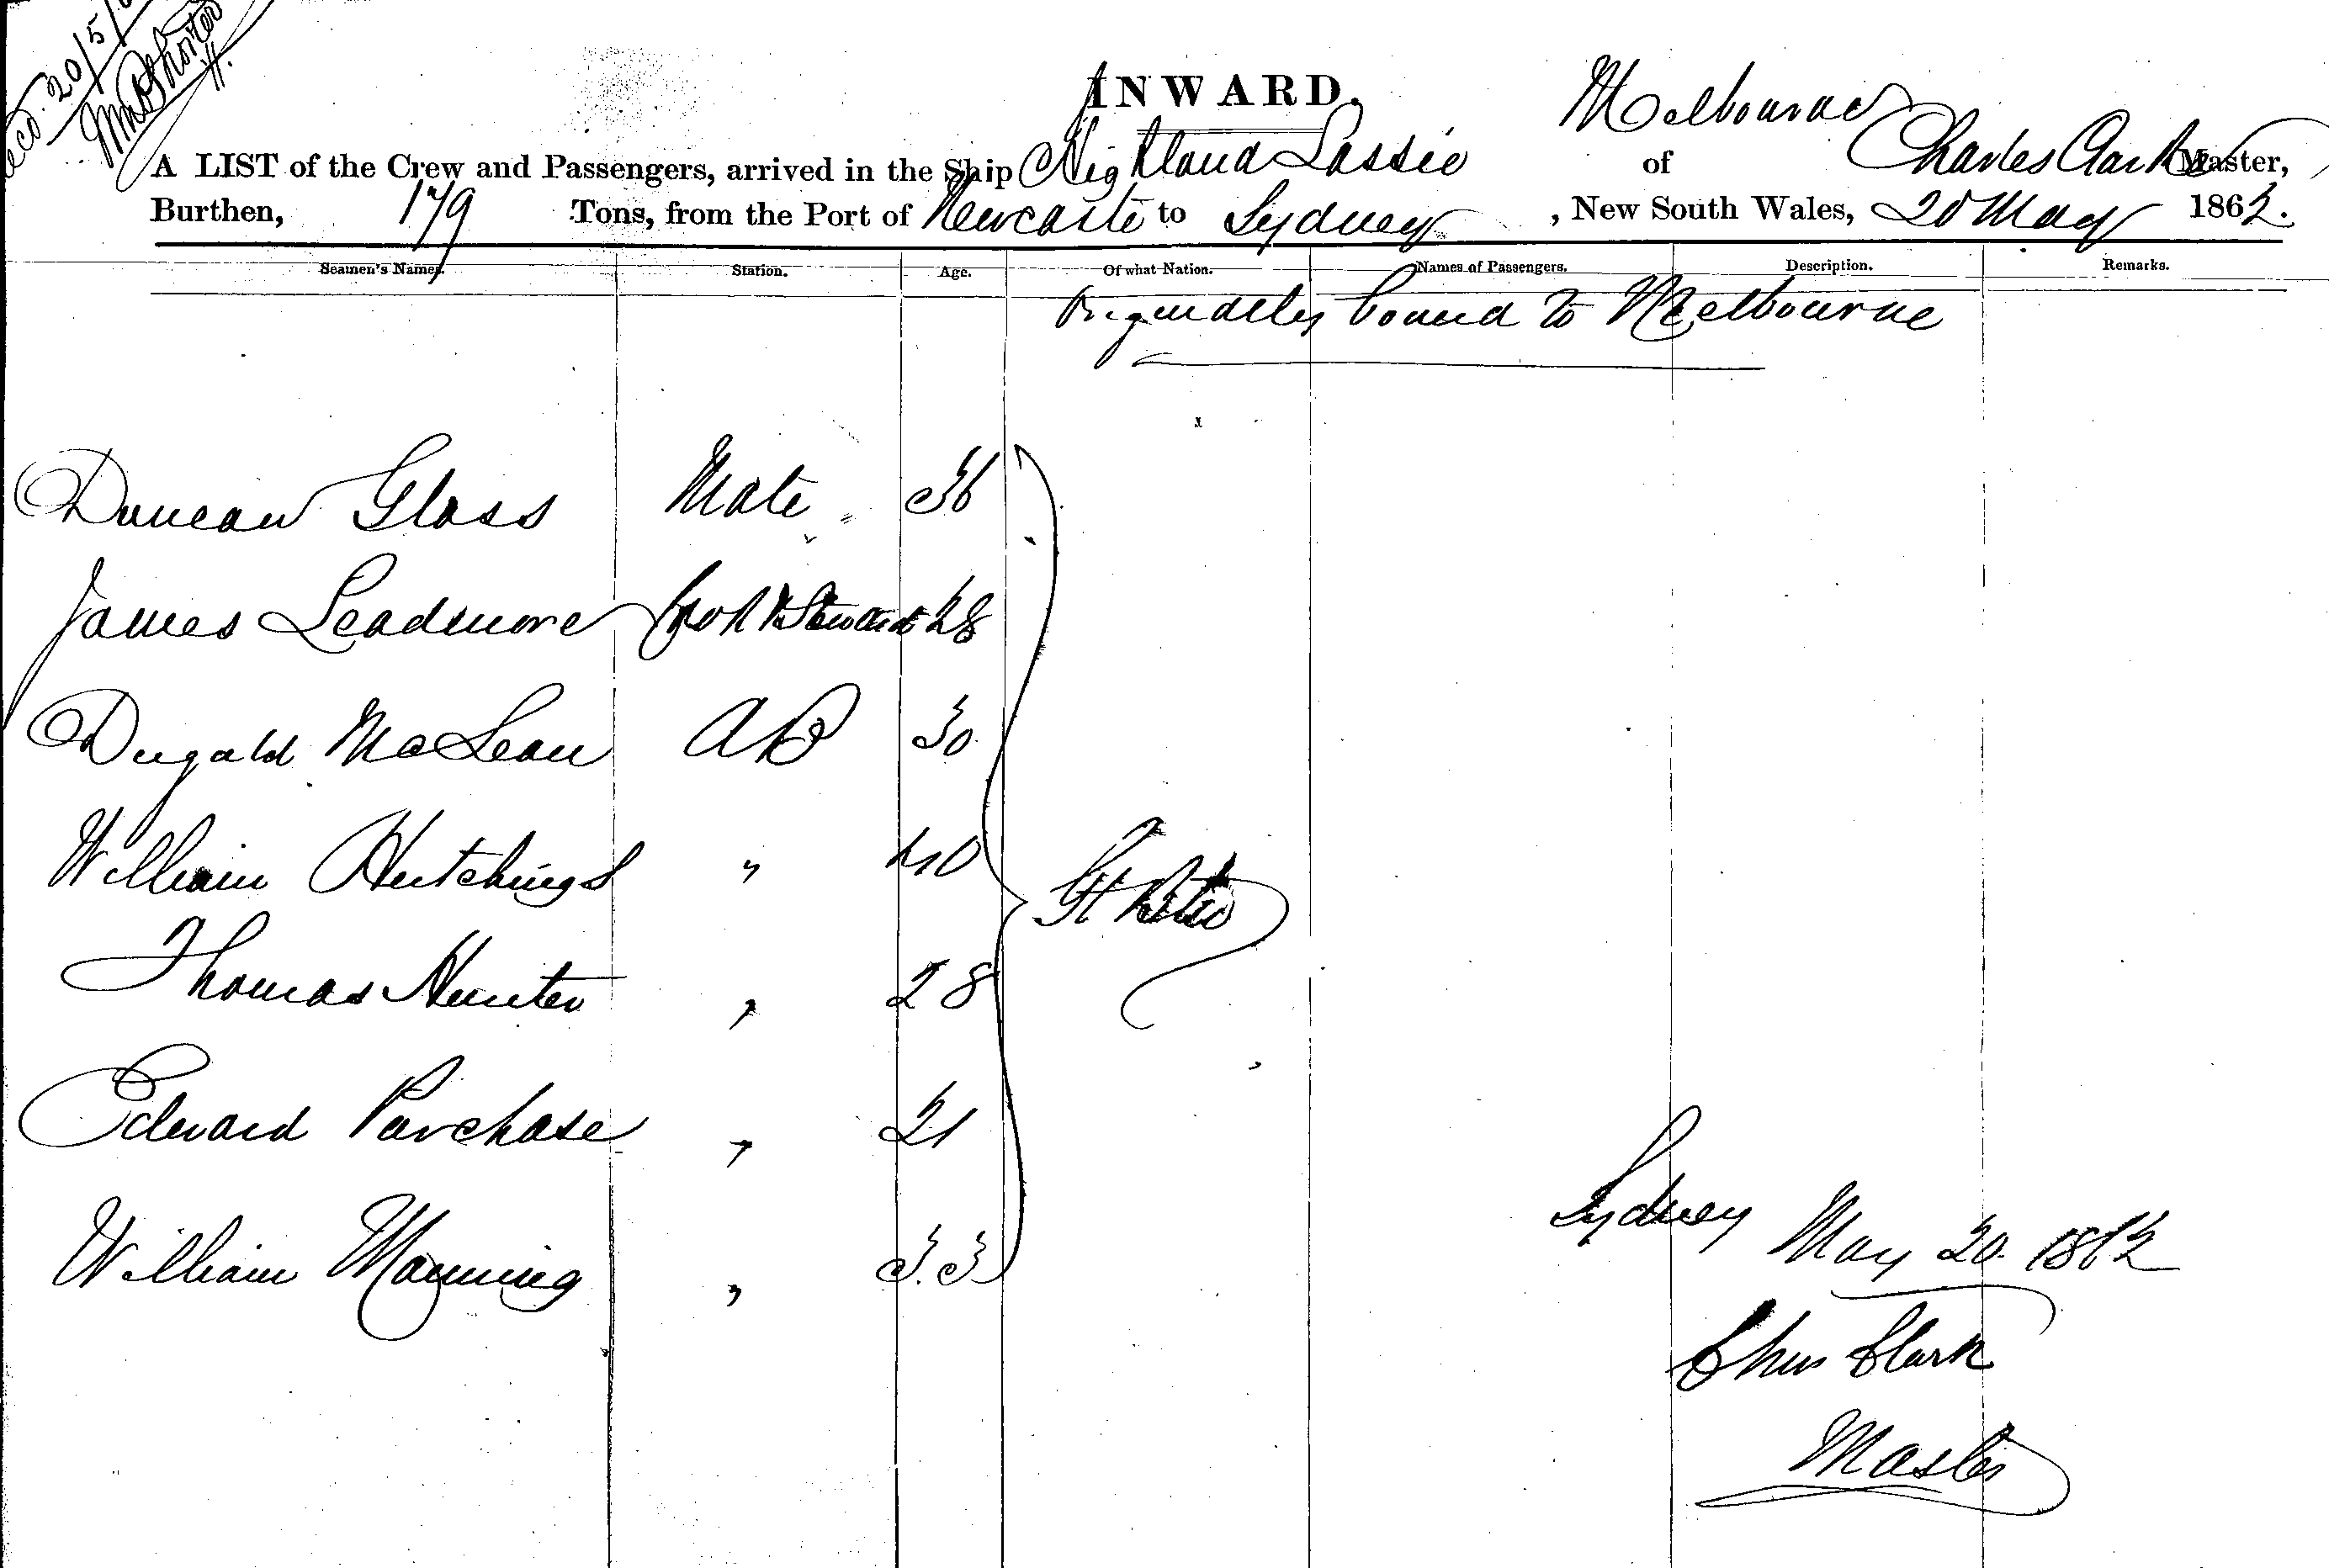 Recd. 20/5/
INWARD.
A LIST of the Crew and Passengers, arrived in the Ship Highland Lassie of Melbourne Charles Clark Master,
Burthen, 179 Tons, from the Port of Newcastle to Sydney, New South Wales, 20 May 1862.
Seamen's Names. Station. Age. Of what Nation. Names of Passengers. Description. Remarks.
Originally bound to Melbourne
Duncan Glass Mate 36
James Leadmore Cook & Steward 28
Dugald McLean AB 30
William Hutchings " 40
Gt Britn
Thomas Hunter " 28
Edward Purchase " 21
William Manning " 33
Sydney May 20. 1862
Chas Clark
Master